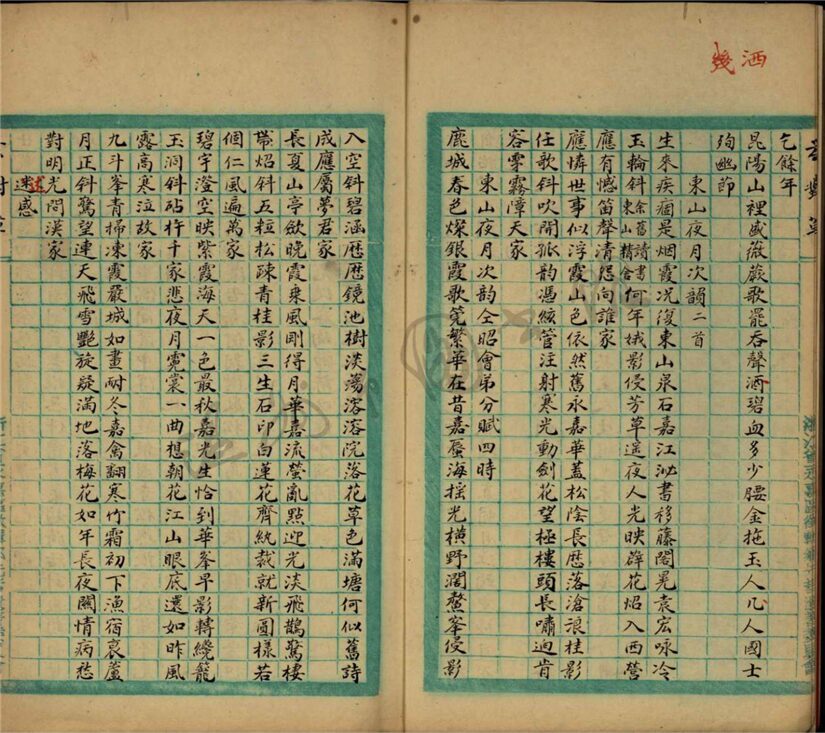 洒
幾
乞餘年
昆陽山裡盛薇蕨歌罷吞聲洒碧血多少腰金拖玉人几人國士
殉幽節
東山夜月次韻二首
生來疾痼是烟霞况復東山泉石嘉江沙書移藤閣晃袁宏咏冷
玉輪斜余舊讀書東山精舍何年娥影侵芳草遥夜人光映辟花炤入西營
應有憾笛聲清怨向誰家
應憐世事似浮霞山色依然舊永嘉華蓋松陰長歷落滄浪桂影
任歌斜吹開孤韵馮絃管注射寒光動劍花望極樓頭長嘯迥肯
容雲霧障天家
東山夜月次韵仝昭會弟分賦四時
鹿城春色燦銀霞歌筦繁華在昔嘉蜃海摇光横野濶鰲峯侵影
入空斜碧涵歷歷鏡池樹淡蕩溶溶院落花草色滿塘何似舊詩
成應屬夢君家
長夏山亭飲晚霞乘風剛得月華嘉流螢亂點迎光淡飛鵲驚棲
帶炤斜五粒松疎青桂影三生石印白蓮花齊紈裁就新圓樣若
個仁風遍萬家
碧宇澄空映紫霞海天一色最秋嘉光生恰到華峯早影轉纔籠
玉洞斜砧杵千家悲夜月霓裳一曲想朝花江山眼底還如昨風
露高寒泣故家
九斗峯青掃凍霞嚴城如畫耐冬嘉禽翻寒竹霜初下漁宿衰蘆
月正斜驚望連天飛雪艷旋疑滿地落梅花如年長夜關情病愁
對明光問漢家
述感